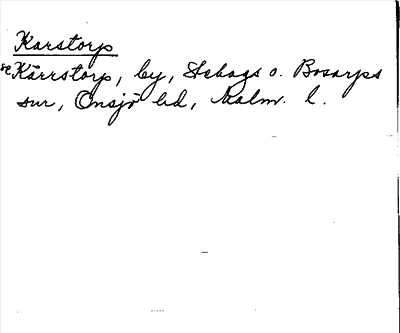 Karstorp
se Kärrstorp, by, Stehags o. Bosarps
snr, Onsjö hd, Malm. l.